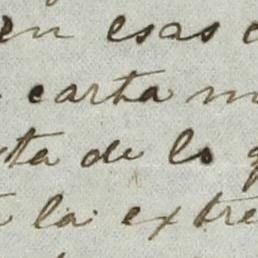 en esas
carta
ta de lo
la extre